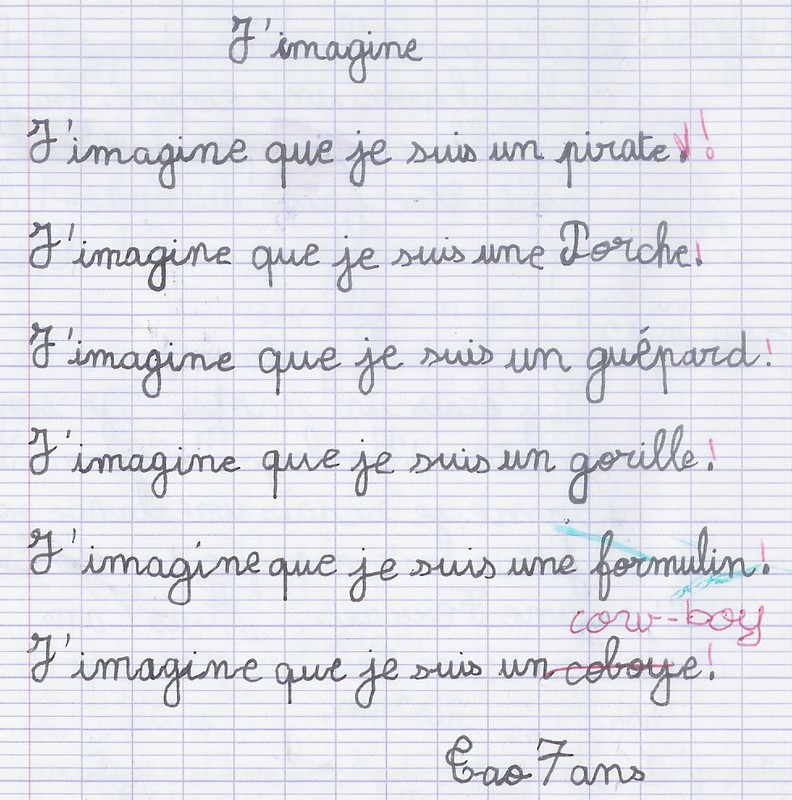 J'imagine
J'imagine que je suis un pirate!
J'imagine que je suis une Porche!
J'imagine que je suis un guépard!
J'imagine que je suis un gorille!
J'imagine que je suis une formulin!
cow-boy
J'imagine que je suis un coboye!
Eao 7 ans